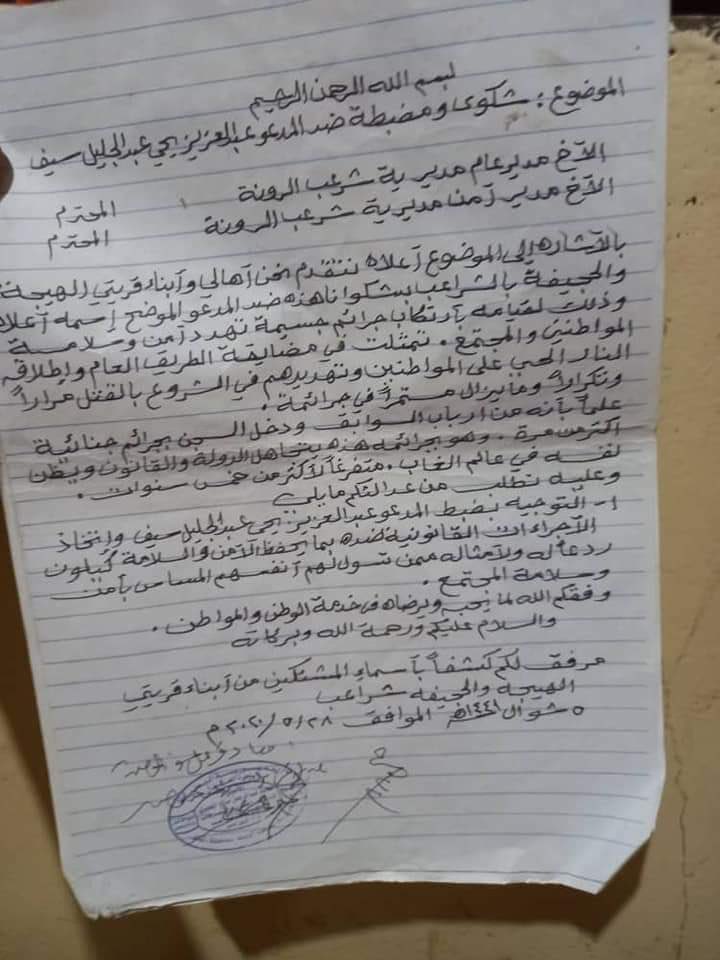 بسم الله الرحمن الرحيم
الموضوع: شكوى ومضبطة ضد المدعو عبدالعزيز يحي عبدالجليل سيف
الآخ مدير عام مديرية شرعب الرونة المحترم
الآخ مدير آمن مديرية شرعب الرونة المحترم
بالآشاره إلى الموضوع آعلاه نتقدم نحن آهالي وآبناء قريتي الهيجة
والجيفة بالشراعب بشكوانا هذه ضد المدعو الموضح إسمه آعلاه
وذلك لقيامه بآرتكاب جرائم جسيمة تهدد آمن وسلامة
المواطنين والمجتمع. تتمثلت في مضايقة الطريق العام وإطلاقه
النار الحي على المواطنين وتهديدهم في الشروع بالقتل مراراً
وتكراراً ومايزال مستمراً في جرائمة.
علماً بآنه من آرباب السوابق ودخل السجن بجرائم جنائية
آكثر من مرة. وهو بجرائمه هذه يتجاهل الدولة والقانون ويظن
نفسه في عالم الغاب. متفرغاً لآكثر من خمس سنوات.
وعليه نطلب من عدالتكم مايلي
١- التوجيه بضبط المدعو عبدالعزيز يحي عبدالجليل سيف وإتخاذ
الآجراءات القانونية ضده بما يحفظ الآمن والسلامة كيلون
ردعاً له ولآمثاله ممن تسول لهم آنفسهم المساس بآمن
وسلامة المجتمع.
وفقكم الله لما يحب ويرضاه في خدمة الوطن والمواطن.
والسلام عليكم ورحمة الله وبركاتة
مرفق لكم كشفاً بآسماء المشتكين من آبناء قريتي
الهيجة والجيفة شراعب
٥ شوال ١٤٤١هـ الموافق ٢٠٢٠/٥/٢٨م